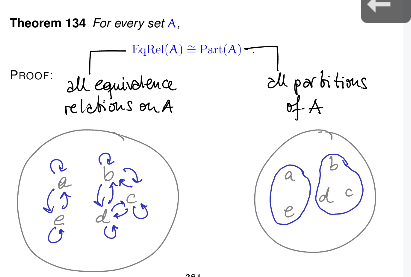 Theorem 134 For every set A,
EqRel(A) ≅ Part(A)
PROOF:
all equivalence
relations on A
all partitions
of A
a
b
c
d
e
a
b
c
d
e